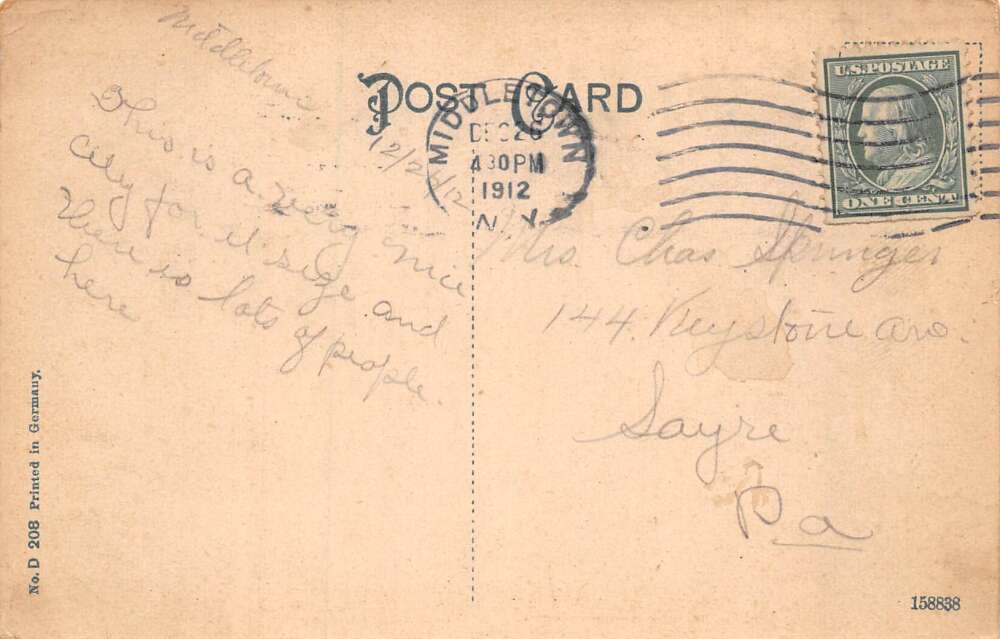 POST CARD
MIDDLETOWN
DEC 26
4 30 PM
1912
N.Y.
U.S. POSTAGE
ONE CENT
12/26/12
This is a very nice
city for it size and
there is lots of people
here
Mrs. Chas Springer
144. Keystone Ave.
Sayre
Pa
No. D 208 Printed in Germany.
158838